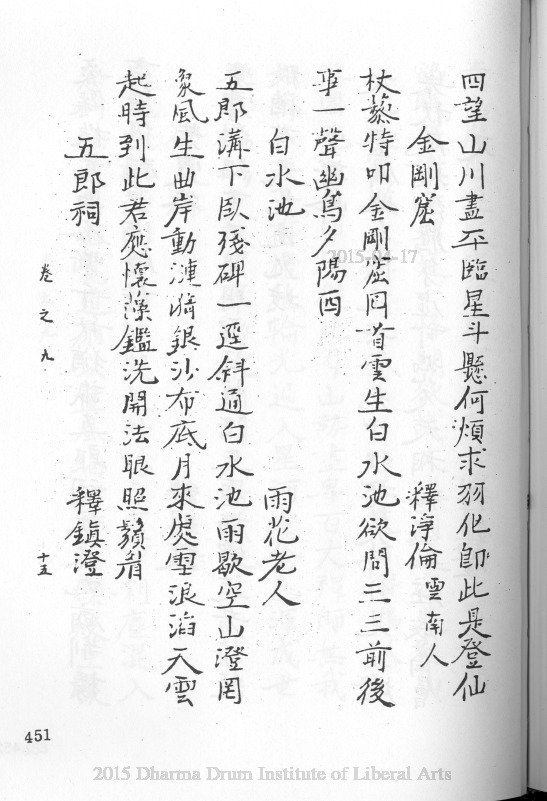 四望山川盡平臨星斗懸何煩求羽化即此是登仙
金剛窟 釋淨倫雲南人
杖藜特叩金剛窟囘首雲生白水池欲問三三前後
事一聲幽鳥夕陽西
白水池 雨花老人
五郎溝下臥殘碑一逕斜通白水池雨歇空山澄罔
象風生曲岸動漣漪銀沙布底月來處雪浪滔天雲
起時到此君應懷藻鑑洗開法眼照鬚眉
五郎祠 釋鎮澄
卷之九
十五
451
2015-04-17
2015 Dharma Drum Institute of Liberal Arts